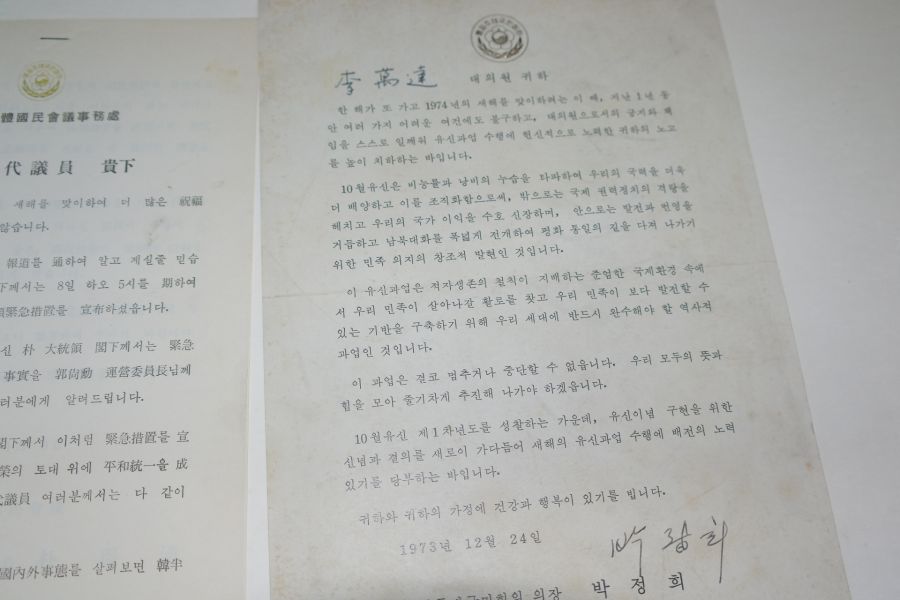 體國民會議事務處
代議員 貴下
새해를 맞이하여 더 많은 祝福
않습니다.
報道를 通하여 알고 계실줄 믿습
下께서는 8일 하오 5시를 期하여
緊急措置를 宣布하셨읍니다.
신 朴 大統領 閣下께서는 緊急
事實을 郭尙勳 運營委員長님께
러분에게 알려드립니다.
閣下께서 이처럼 緊急措置를 宣
榮의 토대 위에 平和統一을 成
代議員 여러분께서는 다 같이
國內外事態를 살펴보면 韓半
李萬達 대의원 귀하
한 해가 또 가고 1974년의 새해를 맞이하려는 이 때, 지난 1년 동
안 여러 가지 어려운 여건에도 불구하고, 대의원으로서의 긍지와 책
임을 스스로 일깨워 유신과업 수행에 헌신적으로 노력한 귀하의 노고
를 높이 치하하는 바입니다.
10월유신은 비능률과 낭비의 누습을 타파하여 우리의 국력을 더욱
더 배양하고 이를 조직화함으로써, 밖으로는 국제 권력정치의 격랑을
헤치고 우리의 국가 이익을 수호 신장하며, 안으로는 발전과 번영을
거듭하고 남북대화를 폭넓게 전개하여 평화 통일의 길을 다져 나가기
위한 민족 의지의 창조적 발현인 것입니다.
이 유신과업은 적자생존의 철칙이 지배하는 준엄한 국제환경 속에
서 우리 민족이 살아나갈 활로를 찾고 우리 민족이 보다 발전할 수
있는 기반을 구축하기 위해 우리 세대에 반드시 완수해야 할 역사적
과업인 것입니다.
이 과업은 결코 멈추거나 중단할 수 없읍니다. 우리 모두의 뜻과
힘을 모아 줄기차게 추진해 나가야 하겠읍니다.
10월유신 제1차년도를 성찰하는 가운데, 유신이념 구현을 위한
신념과 결의를 새로이 가다듬어 새해의 유신과업 수행에 배전의 노력
있기를 당부하는 바입니다.
귀하와 귀하의 가정에 건강과 행복이 있기를 빕니다.
1973년 12월 24일
의장 박정희